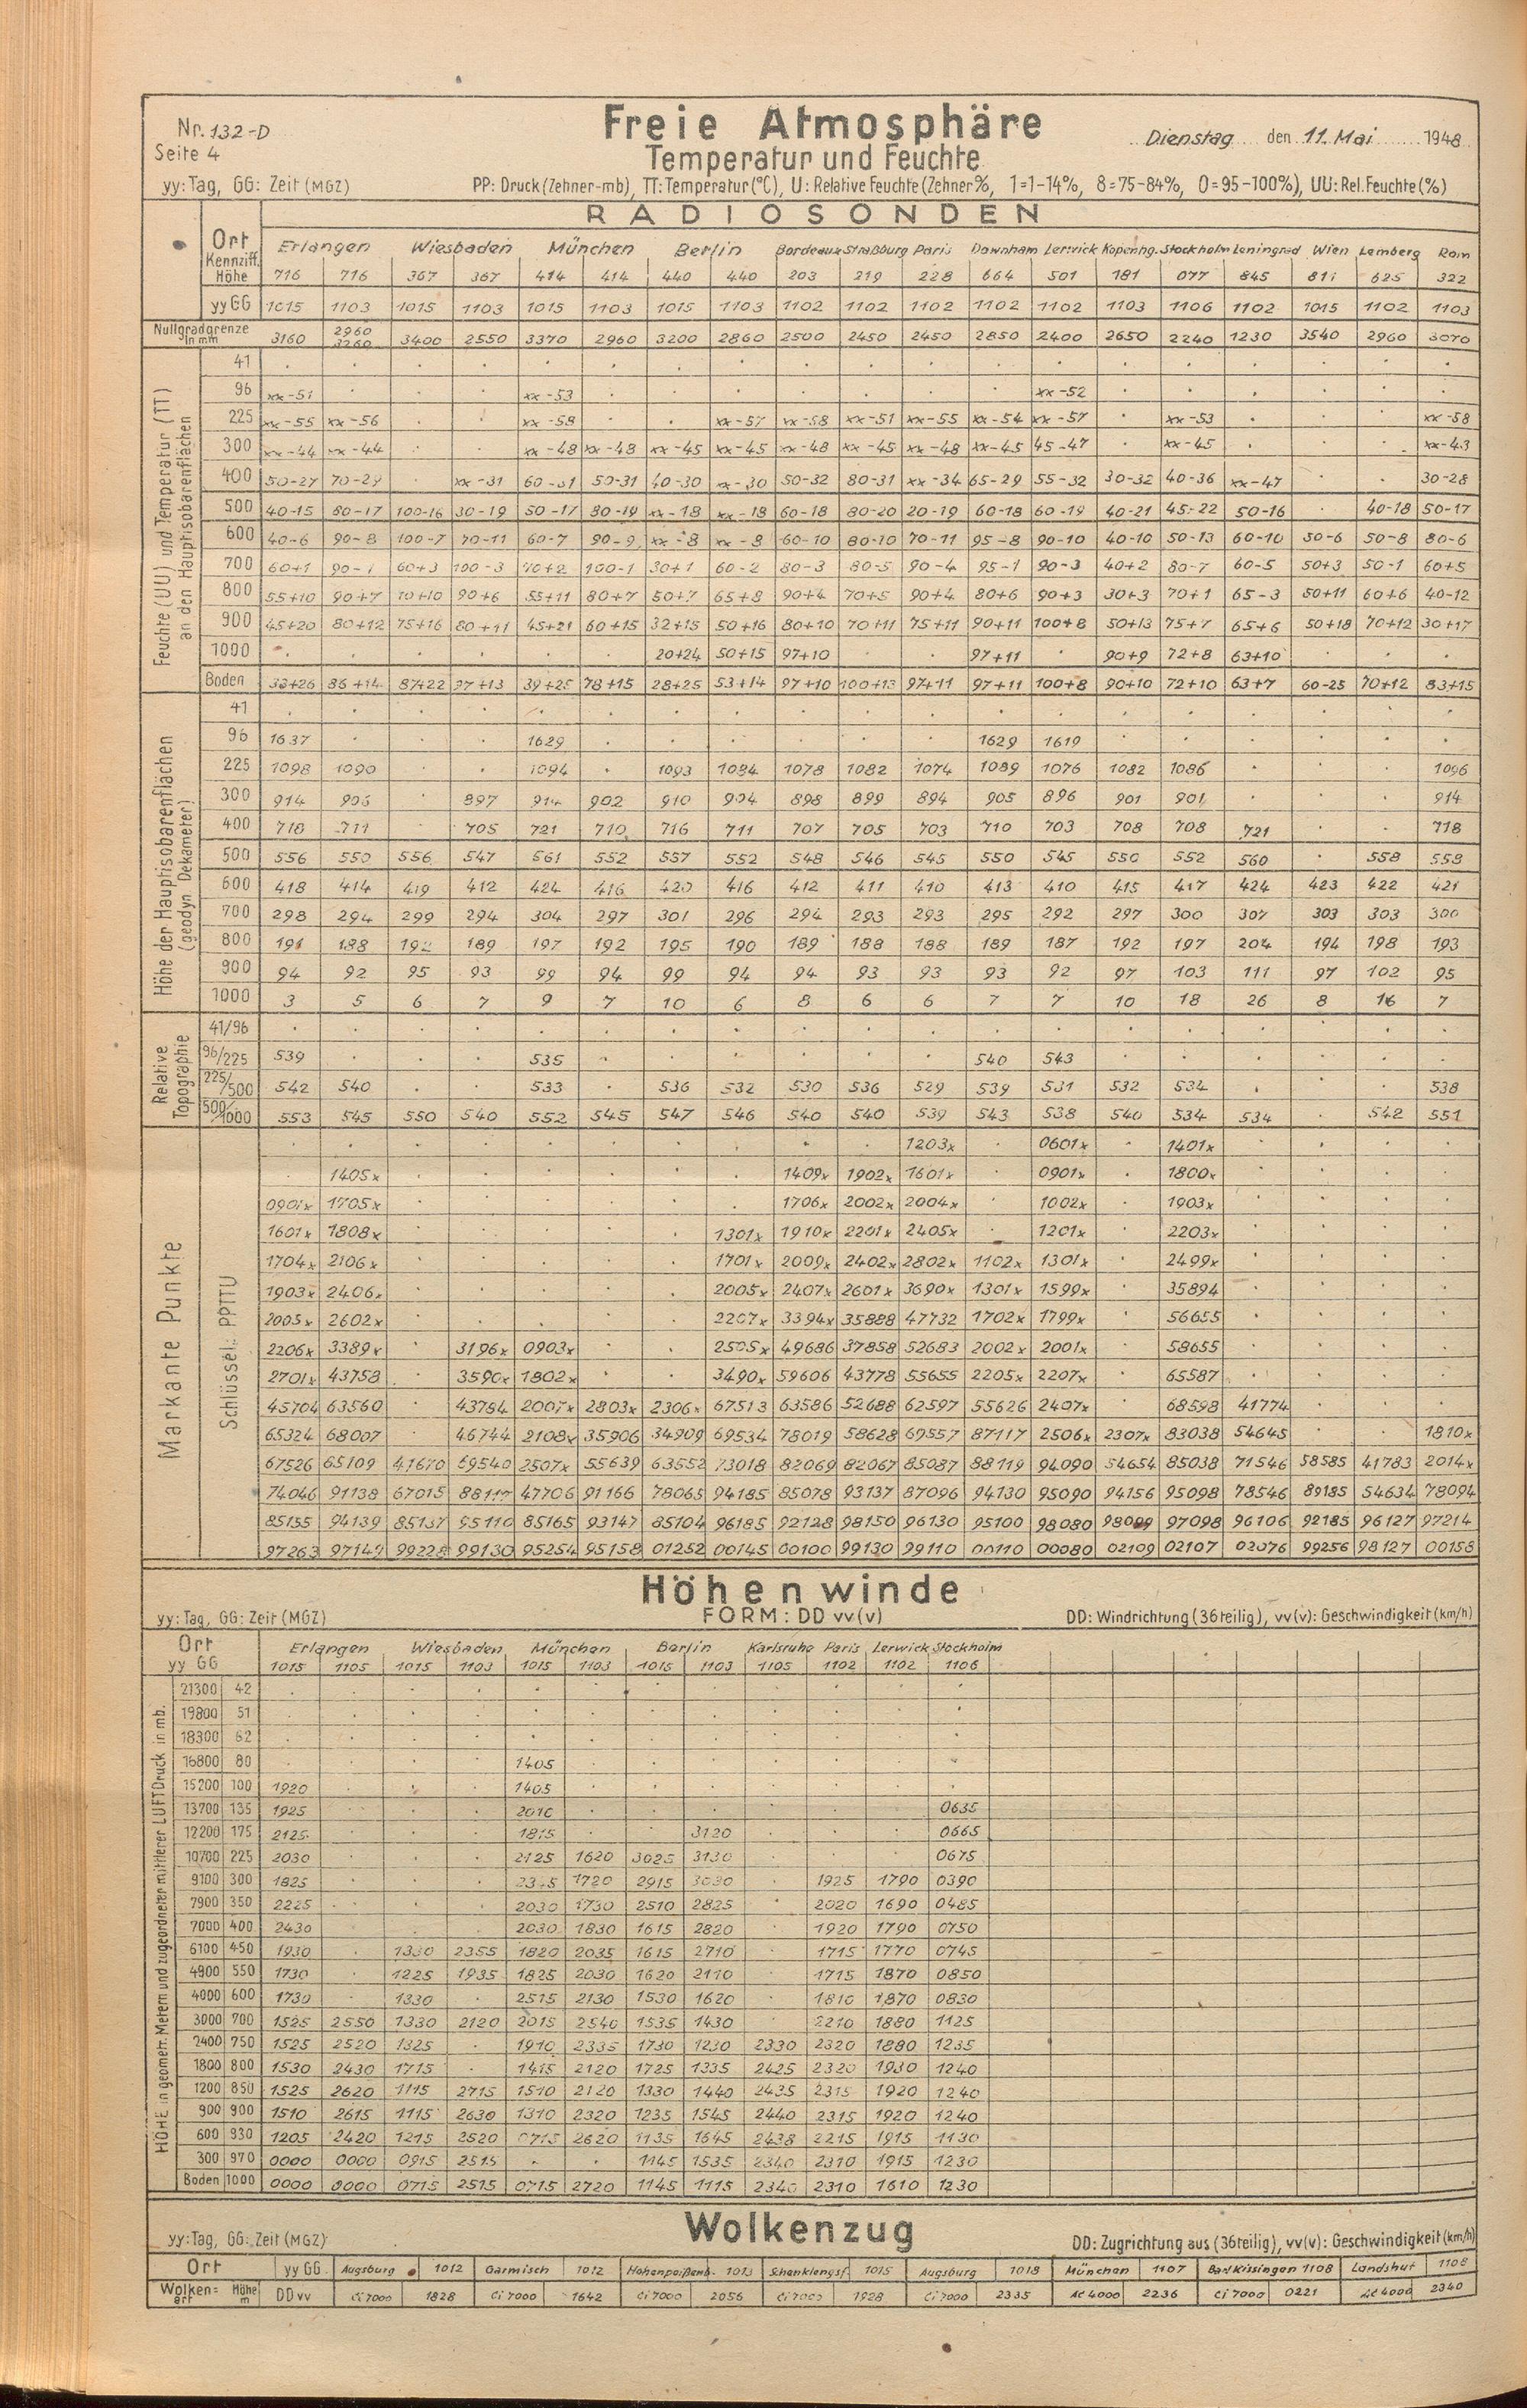 Nr. 132-D
Seite 4
Freie Atmosphäre
Temperatur und Feuchte
Dienstag den 11. Mai 1948
yy: Tag, GG: Zeit (MGZ) PP: Druck (Zehner-mb), TT: Temperatur (°C), U: Relative Feuchte (Zehner %, 1=1-14%, 8=75-84%, 0=95-100%), UU: Rel. Feuchte (%)
RADIOSONDEN
Ort Erlangen Wiesbaden München Berlin Bordeaux Straßburg Paris Downham Lerwick Kopenhg. Stockholm Leningrad Wien Lemberg Rom
Kennziff. Höhe 716 716 367 367 414 414 440 440 203 219 228 664 501 181 077 845 811 625 322
yy GG 1015 1103 1015 1103 1015 1103 1015 1103 1102 1102 1102 1102 1102 1103 1106 1102 1015 1102 1103
Nullgradgrenze in mm 3160 2960 3260 3400 2550 3370 2960 3200 2860 2500 2450 2450 2850 2400 2650 2240 1230 3540 2960 3070
Feuchte (UU) und Temperatur (TT) an den Hauptisobarenflächen
41
96 xx-51 xx-53 xx-52
225 xx-55 xx-56 xx-58 xx-57 xx-58 xx-51 xx-55 xx-54 xx-57 xx-53 xx-58
300 xx-44 xx-44 xx-48 xx-48 xx-45 xx-45 xx-48 xx-45 xx-48 xx-45 45-47 xx-45 xx-43
400 50-27 70-29 xx-31 60-31 50-31 40-30 xx-30 50-32 80-31 xx-34 65-29 55-32 30-32 40-36 xx-47 30-28
500 40-15 80-17 100-16 30-19 50-17 80-19 xx-18 xx-18 60-18 80-20 20-19 60-18 60-19 40-21 45-22 50-16 40-18 50-17
600 40-6 90-8 100-7 70-11 60-7 90-9 xx-8 xx-8 60-10 80-10 70-11 95-8 90-10 40-10 50-13 60-10 50-6 50-8 80-6
700 60+1 90-1 60+3 100-3 70+2 100-1 30+1 60-2 80-3 80-5 90-4 95-1 90-3 40+2 80-7 60-5 50+3 50-1 60+5
800 55+10 90+7 70+10 90+6 55+11 80+7 50+7 65+8 90+4 70+5 90+4 80+6 90+3 30+3 70+1 65-3 50+11 60+6 40-12
900 45+20 80+12 75+16 80+11 45+21 60+15 32+15 50+16 80+10 70+11 75+11 90+11 100+8 50+13 75+7 65+6 50+18 70+12 30+17
1000 20+24 50+15 97+10 97+11 90+9 72+8 63+10
Boden 33+26 86+14 87+22 97+13 39+25 78+15 28+25 53+14 97+10 100+13 97+11 97+11 100+8 90+10 72+10 63+7 60-25 70+12 83+15
Höhe der Hauptisobarenflächen (geodyn Dekameter)
41
96 1637 1629 1629 1619
225 1098 1090 1094 1093 1084 1078 1082 1074 1089 1076 1082 1086 1096
300 914 906 897 914 902 910 904 898 899 894 905 896 901 901 914
400 718 711 705 721 710 716 711 707 705 703 710 703 708 708 721 718
500 556 550 556 547 561 552 557 552 548 546 545 550 545 550 552 560 558 558
600 418 414 419 412 424 416 420 416 412 411 410 413 410 415 417 424 423 422 421
700 298 294 299 294 304 297 301 296 294 293 293 295 292 297 300 307 303 303 300
800 191 188 192 189 197 192 195 190 189 188 188 189 187 192 197 204 194 198 193
900 94 92 95 93 99 94 99 94 94 93 93 93 92 97 103 111 97 102 95
1000 3 5 6 7 9 7 10 6 8 6 6 7 7 10 18 26 8 16 7
Relative Topographie
41/96
96/225 539 535 540 543
225/500 542 540 533 536 532 530 536 529 539 531 532 534 538
500/1000 553 545 550 540 552 545 547 546 540 540 539 543 538 540 534 534 542 551
Markante Punkte
Schlüssel: PPTTU
1203x 0601x 1401x
1405x 1409x 1902x 1601x 0901x 1800x
0901x 1705x 1706x 2002x 2004x 1002x 1903x
1601x 1808x 1301x 1910x 2201x 2405x 1201x 2203x
1704x 2106x 1701x 2009x 2402x 2802x 1102x 1301x 2499x
1903x 2406x 2005x 2407x 2601x 3690x 1301x 1599x 35894
2005x 2602x 2207x 3394x 35888 47732 1702x 1799x 56655
2206x 3389x 3196x 0903x 2505x 49686 37858 52683 2002x 2001x 58655
2701x 43758 3590x 1802x 3490x 59606 43778 55655 2205x 2207x 65587
45704 63560 43764 2007x 2803x 2306x 67513 63586 52688 62597 55626 2407x 68598 41774
65324 68007 46744 2108x 35906 34909 69534 78019 58628 69557 87117 2506x 2307x 83038 54645 1810x
67526 85109 41670 69540 2507x 55639 63552 73018 82069 82067 85087 88119 94090 54654 85038 71546 58585 41783 2014x
74046 91138 67015 88117 47706 91166 78065 94185 85078 93137 87096 94130 95090 94156 95098 78546 89185 54634 78094
85155 94139 85137 95110 85165 93147 85104 96185 92128 98150 96130 95100 98080 98099 97098 96106 92185 96127 97214
97263 97149 99228 99130 95254 95158 01252 00145 00100 99130 99110 00110 00080 02109 02107 02076 99256 98127 00158
Höhenwinde
yy: Tag, GG: Zeit (MGZ) FORM: DD vv(v) DD: Windrichtung (36teilig), vv(v): Geschwindigkeit (km/h)
Ort Erlangen Wiesbaden München Berlin Karlsruhe Paris Lerwick Stockholm
yy GG 1015 1105 1015 1103 1015 1103 1015 1103 1105 1102 1102 1106
HÖHE in geometr. Metern und zugeordneter mittlerer LUFTDruck in mb.
21300 42
19800 51
18300 62
16800 80 1405
15200 100 1920 1405
13700 135 1925 2010 0635
12200 175 2125 1815 3120 0665
10700 225 2030 2125 1620 3025 3130 0675
9100 300 1825 1720 2915 3030 1925 1790 0390
7900 350 2225 2030 1730 2510 2825 2020 1690 0485
7000 400 2430 2030 1830 1615 2820 1920 1790 0750
6100 450 1930 1330 2355 1820 2035 1615 2710 1715 1770 0745
4900 550 1730 1225 1935 1825 2030 1620 2110 1715 1870 0850
4000 600 1730 1330 2515 2130 1530 1620 1810 1870 0830
3000 700 1525 2550 1330 2120 2015 2540 1535 1430 2210 1880 1125
2400 750 1525 2520 1325 1910 2335 1730 1230 2330 2320 1880 1235
1800 800 1530 2430 1715 1415 2120 1725 1335 2425 2320 1930 1240
1200 850 1525 2620 1115 2715 1510 2120 1330 1440 2435 2315 1920 1240
900 900 1510 2615 1115 2630 1310 2320 1235 1545 2440 2315 1920 1240
600 930 1205 2420 1215 2520 0715 2620 1135 1645 2438 2215 1915 1130
300 970 0000 0000 0915 2515 1145 1535 2340 2310 1915 1230
Boden 1000 0000 0000 0715 2515 0715 2720 1145 1115 2340 2310 1610 1230
Wolkenzug
yy: Tag, GG: Zeit (MGZ) DD: Zugrichtung aus (36teilig), vv(v): Geschwindigkeit (km/h)
Ort yy GG Augsburg 1012 Garmisch 1012 Hohenpeißenb. 1013 Schenklengsf. 1015 Augsburg 1018 München 1107 Bad Kissingen 1108 Landshut 1108
Wolken=art Höhe m DD vv Ci 7000 1828 Ci 7000 1642 Ci 7000 2056 Ci 7000 1928 Ci 7000 2335 Ac 4000 2236 Ci 7000 0221 Ac 4000 2340